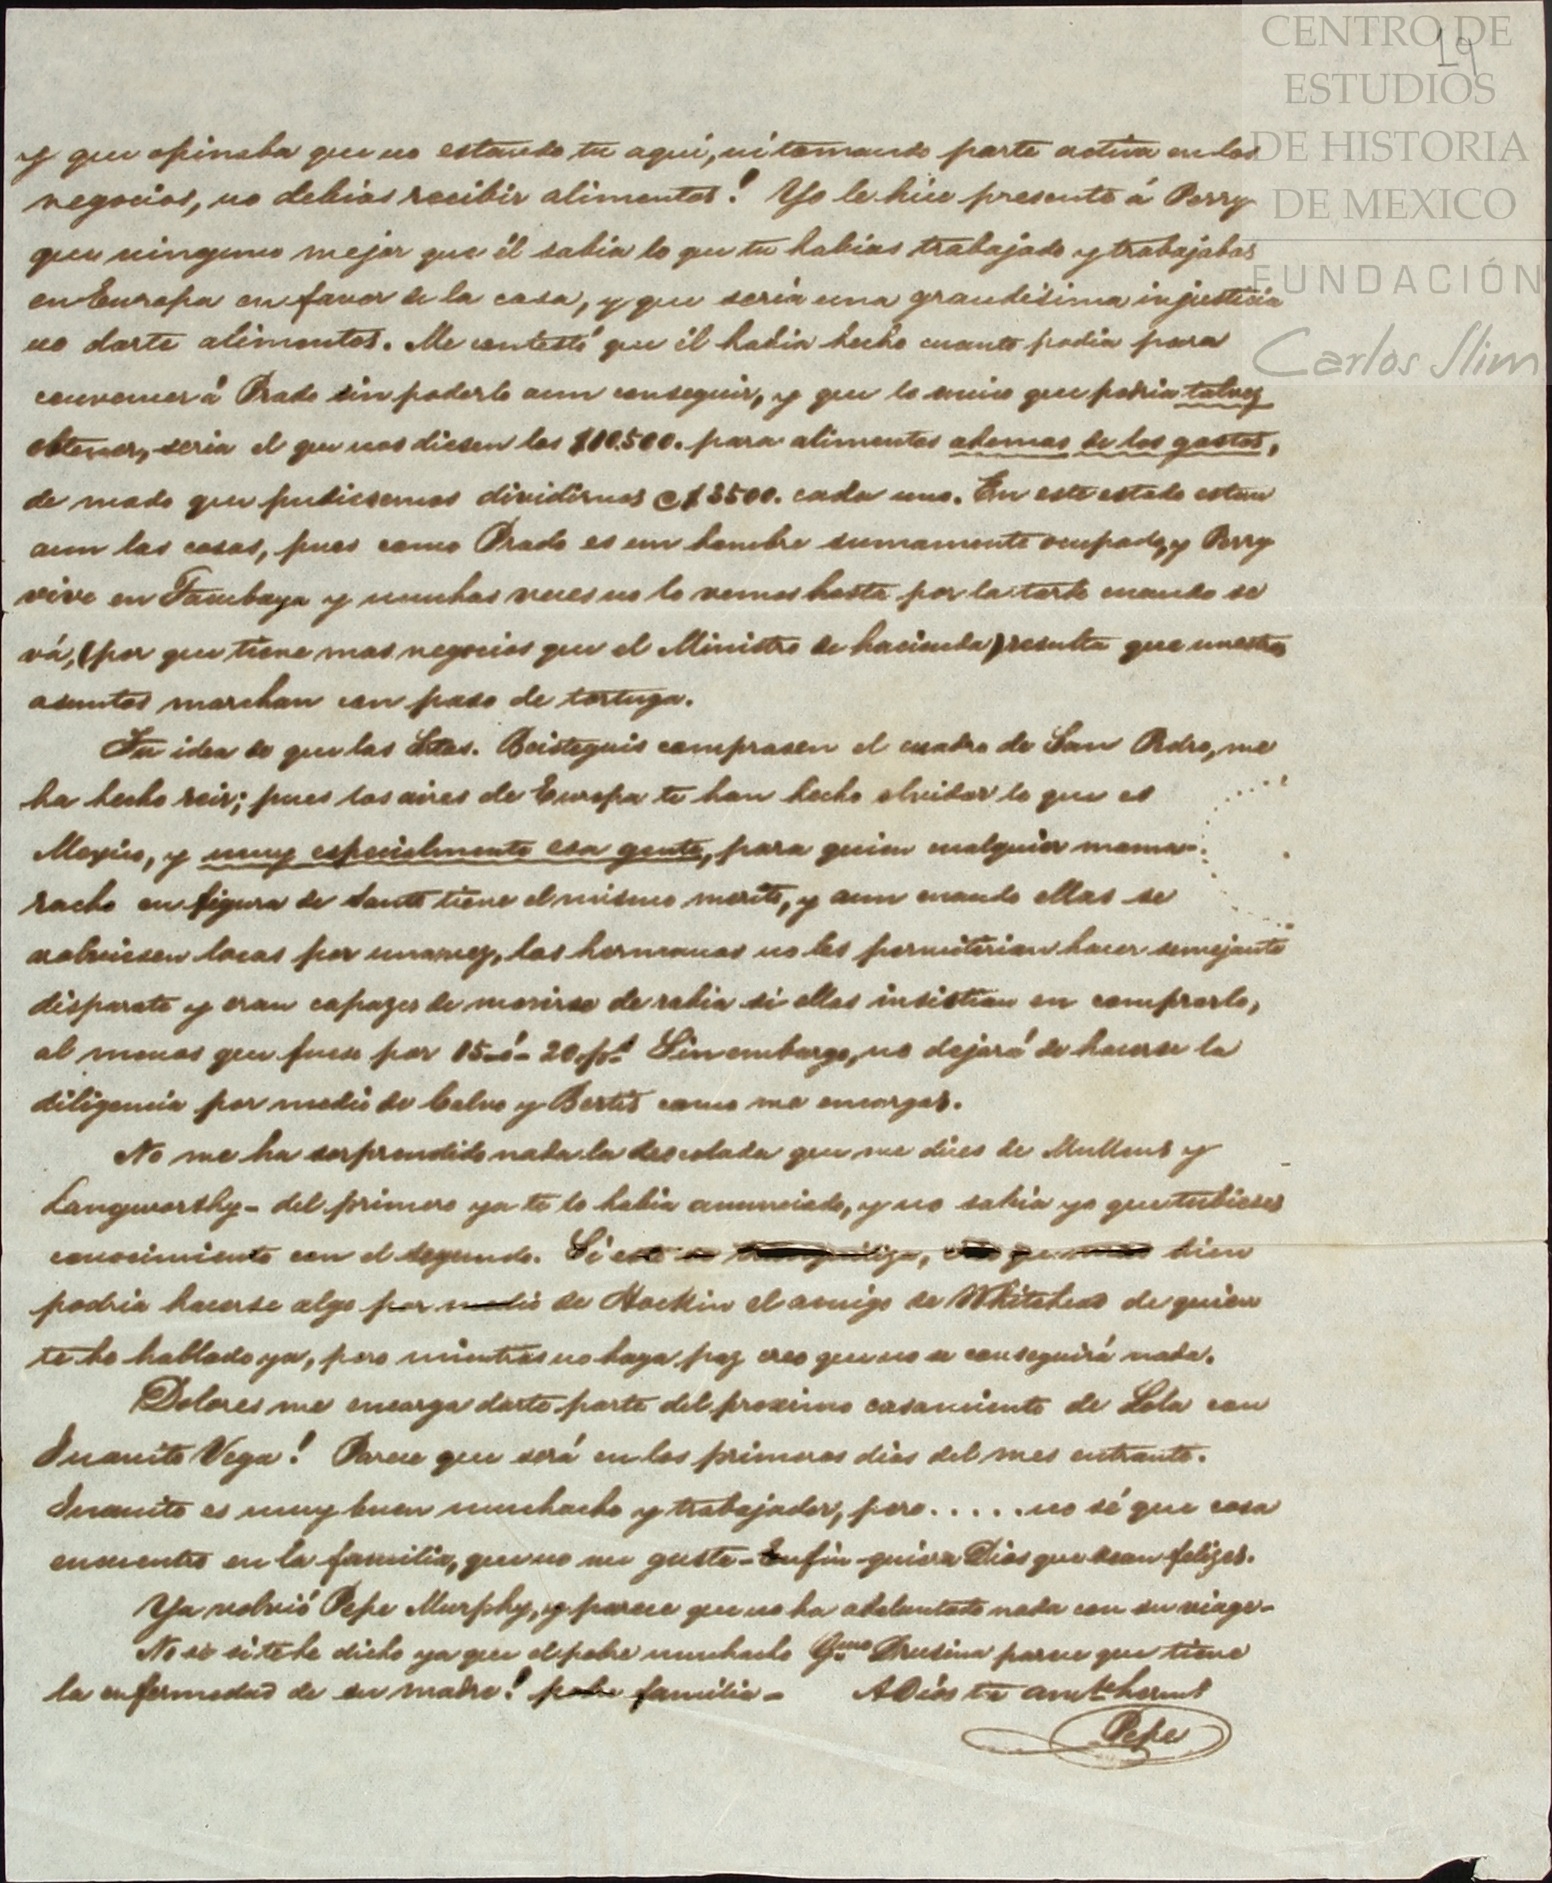 CENTRO DE
ESTUDIOS
DE HISTORIA
DE MEXICO
FUNDACIÓN
Carlos Slim
19
y que opinaba que no estando tu aqui, ni tomando parte activa en los
negocios, no debias recibir alimentos! Yo le hice presente á Perry
que ninguno mejor que él sabia lo que tu habias trabajado y trabajabas
en Europa en favor de la casa, y que sería una grandisima injusticia
no darte alimentos. Me contestó que él habia hecho cuanto podia para
convencer á Prado sin poderlo aun conseguir, y que lo unico que podria talvez
obtener, seria el que nos diesen los $10.500. para alimentos ademas de los gastos,
de modo que pudiesemos dividirnos @ $3500. cada uno. En este estado estan
aun las cosas, pues como Prado es un hombre sumamente ocupado, y Perry
vive en Tacubaya y muchas veces no lo vemos hasta por la tarde cuando se
vá, (por que tiene mas negocios que el Ministro de hacienda) resulta que nuestros
asuntos marchan con paso de tortuga.
Tu idea de que las Stas. Beisteguis comprasen el cuadro de San Pedro, me
ha hecho reir; pues los aires de Europa te han hecho olvidar lo que es
Mexico, y muy especialmente esa gente, para quien cualquier mama-
racho en figura de Santo tiene el mismo merito, y aun cuando ellas se
volviesen locas por una vez, los hermanos no les permiterian hacer semejante
disparate y eran capazes de morirse de rabia si ellas insistian en comprarlo,
al menos que fuese por 15 ó 20 ps. Sin embargo, no dejará de hacerse la
diligencia por medio de Calvo y Bertis como me encargas.
No me ha sorprendido nada la descolada que me dices de Mullens y
Langworthy - del primero ya te lo habia anunciado, y no sabia yo que tubieses
conocimiento con el segundo. Si esto se, bien
podria hacerse algo por medio de Hockin el amigo de Whitehead de quien
te he hablado ya, pero mientras no haya paz creo que no se conseguirá nada.
Dolores me encarga darte parte del proximo casamiento de Lola con
Juanito Vega! Parece que será en los primeros dias del mes entrante.
Juanito es muy buen muchacho y trabajador, pero . . . . . no sé que cosa
encuentro en la familia, que no me gusta - En fin quiera Dios que sean felizes.
Ya volvió Pepe Murphy, y parece que no ha adelantado nada con su viage -
No se si te he dicho ya que el pobre muchacho Gmo Drusina parece que tiene
la enfermedad de su madre! pobre familia - Adios tu amte. hermo.
Pepe